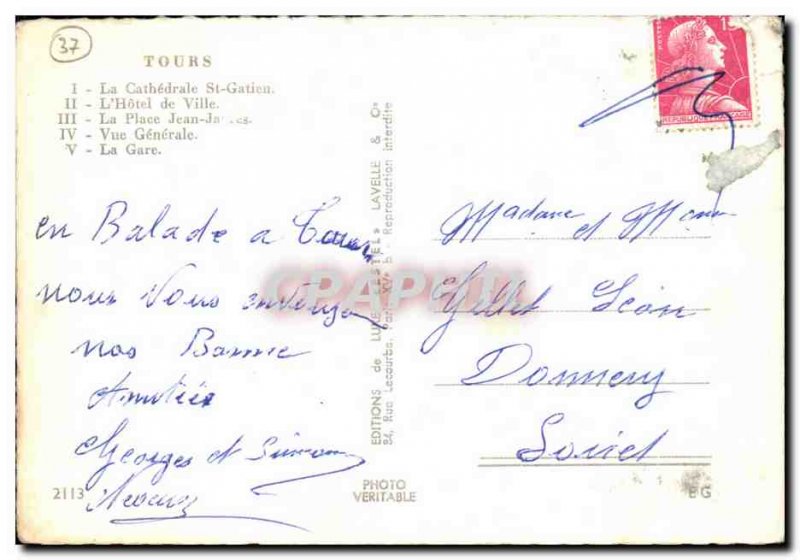 37
TOURS
I - La Cathédrale St-Gatien.
II - L'Hôtel de Ville.
III - La Place Jean-Jaurès.
IV - Vue Générale.
V - La Gare.
en Balade a Tours
nous Vous envoyons
nos Bonne
Amitiés
Georges et Simone
2113
EDITIONS de LUXE ESTEL LAVELLE & Cie
84, Rue Lecourbe, Paris XVe Reproduction interdite
PHOTO
VERITABLE
POSTES
15
REPUBLIQUE FRANÇAISE
Madame et Mon
Gillet Léon
Donnery
Loiret
BG
CPAPHIL